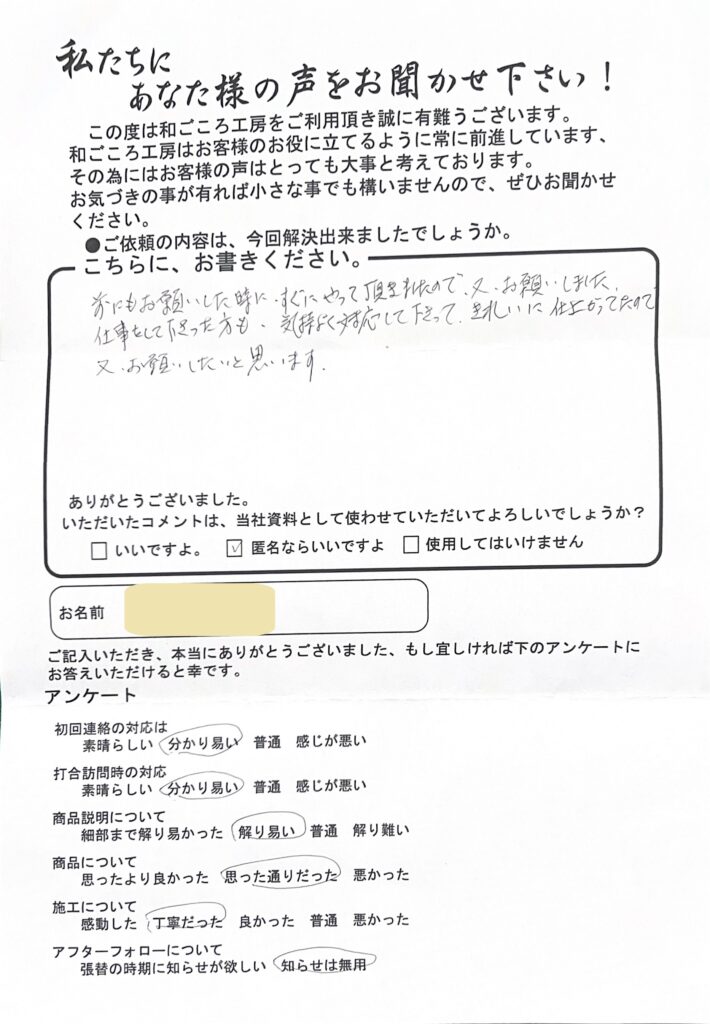 私たちに
あなた様の声をお聞かせ下さい！
この度は和ごころ工房をご利用頂き誠に有難うございます。
和ごころ工房はお客様のお役に立てるように常に前進しています、
その為にはお客様の声はとっても大事と考えております。
お気づきの事が有れば小さな事でも構いませんので、ぜひお聞かせ
ください。
●ご依頼の内容は、今回解決出来ましたでしょうか。
こちらに、お書きください。
前にもお願いした時に、すぐにやって頂きましたので、又、お願いしました。
仕事をして下さった方も、気持よく対応して下さって、きれいに仕上がってたので
又、お願いしたいと思います。
ありがとうございました。
いただいたコメントは、当社資料として使わせていただいてよろしいでしょうか？
□ いいですよ。 ☑ 匿名ならいいですよ □ 使用してはいけません
お名前
ご記入いただき、本当にありがとうございました、もし宜しければ下のアンケートに
お答えいただけると幸です。
アンケート
初回連絡の対応は
素晴らしい 分かり易い 普通 感じが悪い
打合訪問時の対応
素晴らしい 分かり易い 普通 感じが悪い
商品説明について
細部まで解り易かった 解り易い 普通 解り難い
商品について
思ったより良かった 思った通りだった 悪かった
施工について
感動した 丁寧だった 良かった 普通 悪かった
アフターフォローについて
張替の時期に知らせが欲しい 知らせは無用